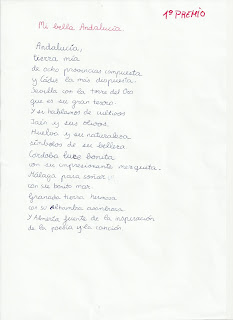 1º PREMIO
Mi bella Andalucía
Andalucía,
tierra mía
de ocho provincias compuesta
y Cádiz la más dispuesta.
Sevilla con la torre del Oro
que es su gran tesoro.
Y si hablamos de cultivos
Jaén y sus olivos.
Huelva y su naturaleza
símbolos de su belleza
Córdoba luce bonita
con su impresionante mezquita.
Málaga para soñar
con su bonito mar
Granada tierra hermosa
con su Alhambra asombrosa
Y Almería fuente de la inspiración
de la poesía y la canción.